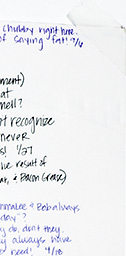 Chubby right here.
of saying "fat"? 9/6
ment)
at
mell?
t recognize
never
s! 1/27
he result of
, & Bacon Grease)
& Bob always
day"?
y do, don't they.
y always have
need! 9/18